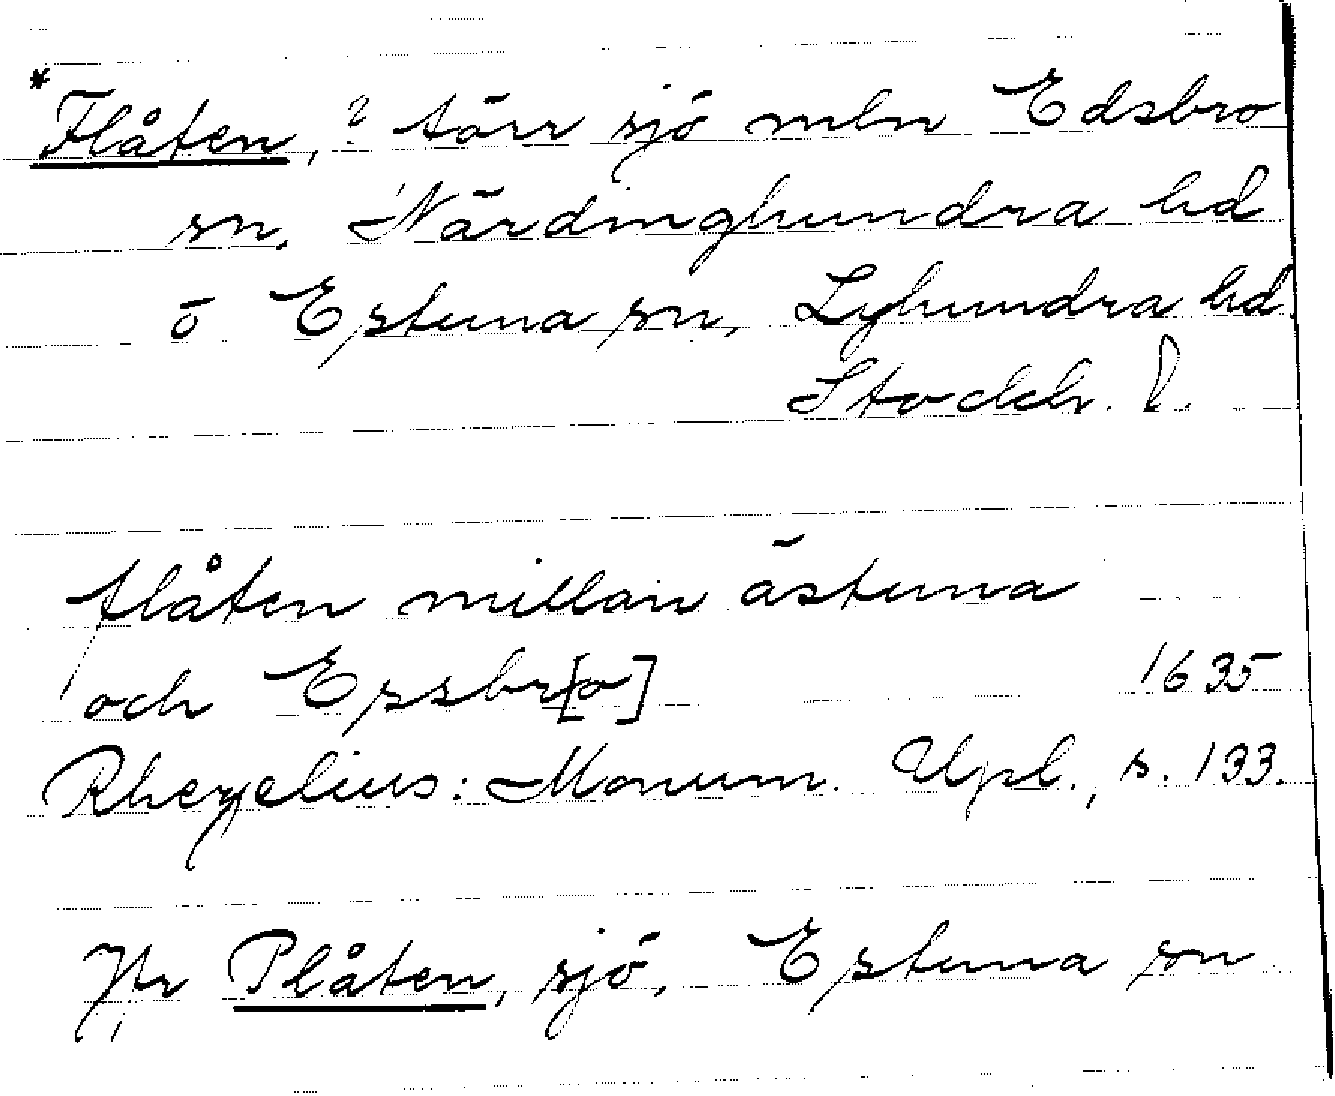 *Flåten, ? törr sjö mln Edsbro
sn, Närdinghundra hd
o Estuna sn, Lyhundra hd.
Stockh. l.
flåten millan ästuna
och Essbr[o] 1635
Rhezelius: Monum. Upl., s. 133.
Jfr Plåten, sjö, Estuna sn